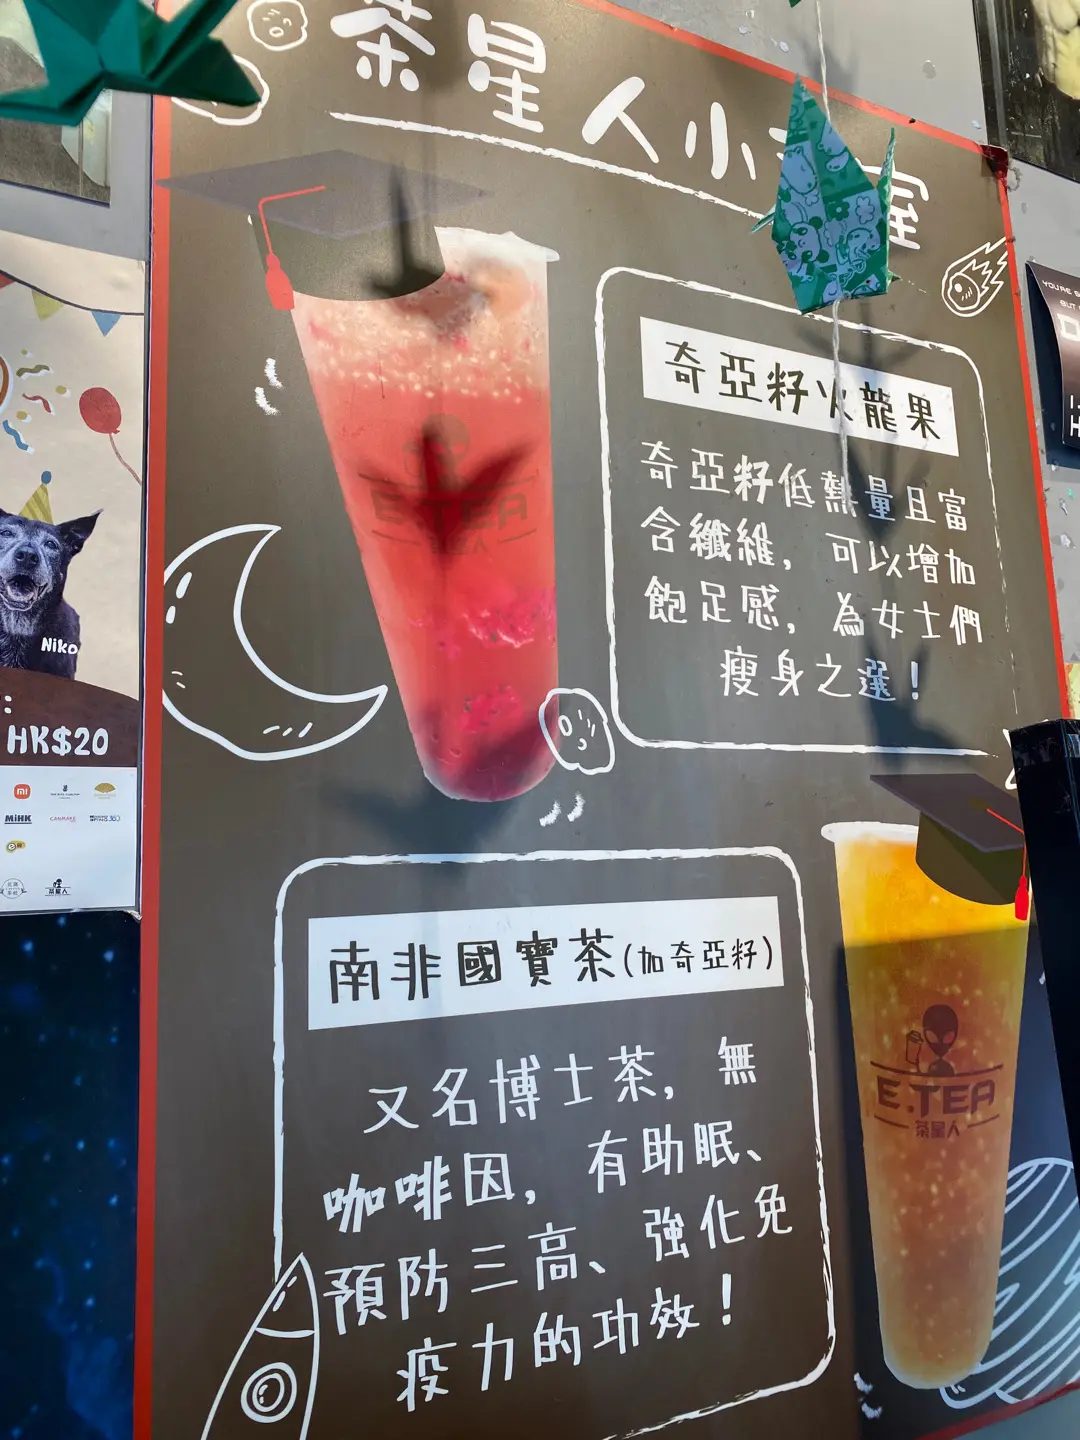 茶星人小
室
奇亞籽火龍果
奇亞籽低熱量且富
含纖維，可以增加
飽足感，為女士們
瘦身之選！
E.TEA
茶星人
南非國寶茶(加奇亞籽)
又名博士茶，無
咖啡因，有助眠、
預防三高、強化免
疫力的功效！
E.TEA
茶星人
Niko
:
HK$20
MiHK
CANMAKE
茶星人
YOU'RE S
BUT